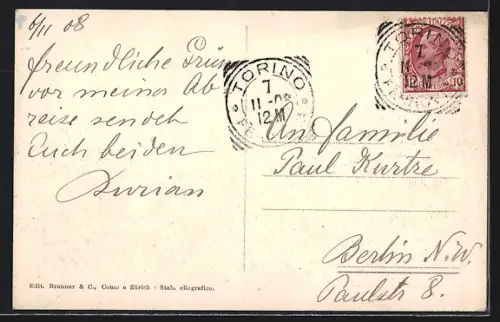 6/11 08
freundliche Grüsse
vor meiner Ab
reise sendet
Euch beiden
TORINO
7
11-08
12M
TORINO
7
11
M
10
10
An familie
Paul Kurtze
Berlin N.W.
Paulstr 8.
Edit. Brunner & C., Como e Zürich - Stab. eliografico.